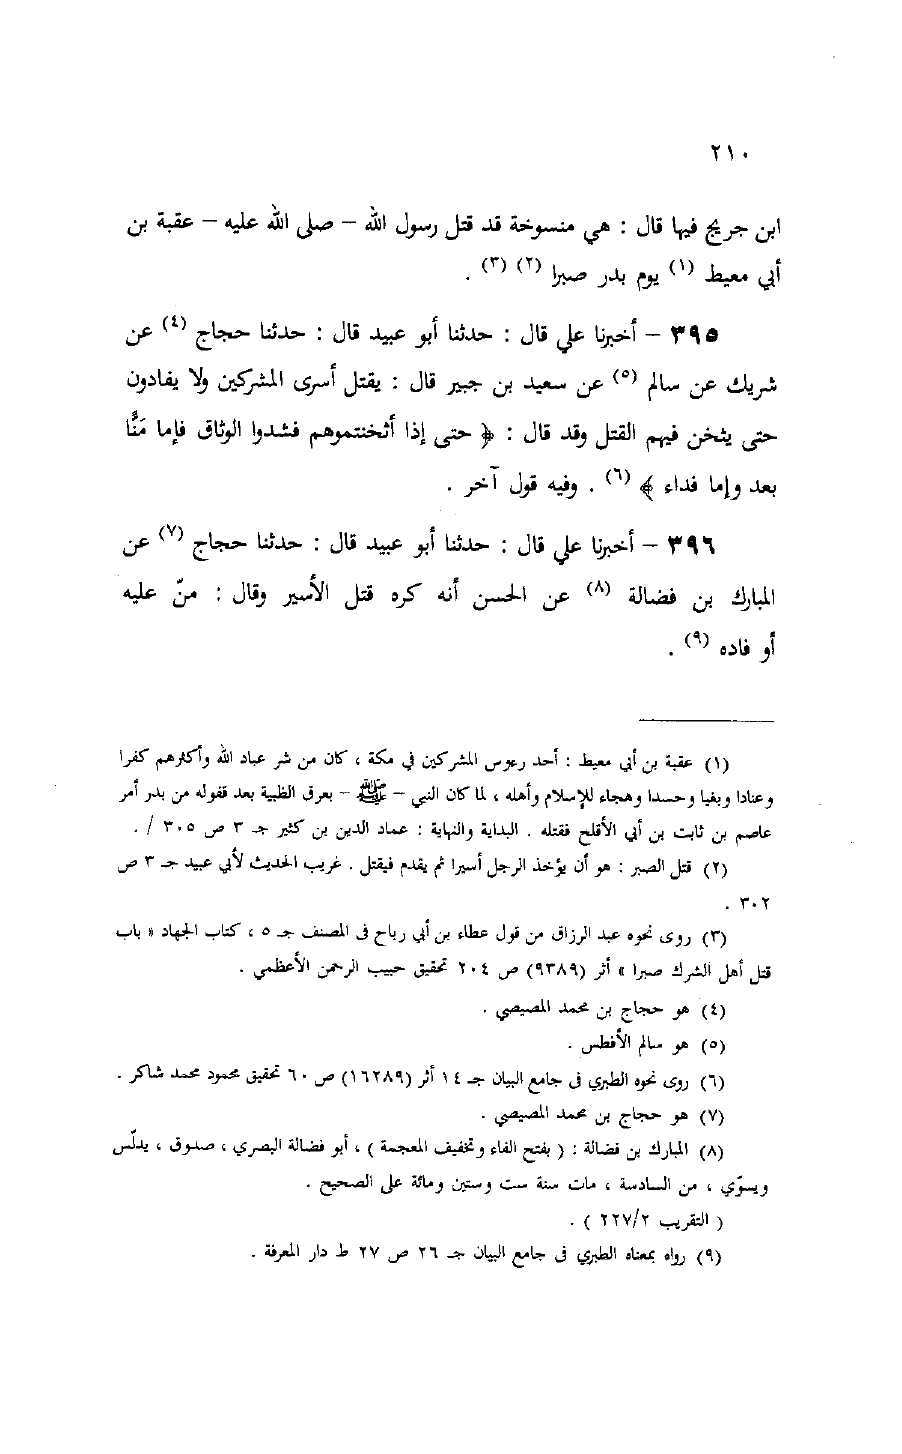 ٢١٠
ابن جريج فيها قال : هي منسوخة قد قتل رسول الله – صلى الله عليه – عقبة بن
أبي معيط (١) يوم بدر صبرا (٢) (٣) .
٣٩٥ – أخبرنا علي قال : حدثنا أبو عبيد قال : حدثنا حجاج (٤) عن
شريك عن سالم (٥) عن سعيد بن جبير قال : يقتل أسرى المشركين ولا يفادون
حتى يثخن فيهم القتل وقد قال : ﴿ حتى إذا أثخنتموهم فشدوا الوثاق فإما مَنًّا
بعد وإما فداء ﴾ (٦) . وفيه قول آخر .
٣٩٦ – أخبرنا علي قال : حدثنا أبو عبيد قال : حدثنا حجاج (٧) عن
المبارك بن فضالة (٨) عن الحسن أنه كره قتل الأسير وقال : منّ عليه
أو فاده (٩) .
(١) عقبة بن أبي معيط : أحد رءوس المشركين في مكة ، كان من شر عباد الله وأكثرهم كفرا
وعنادا وبغيا وحسدا وهجاء للإسلام وأهله ، لما كان النبي – ﷺ – بعرق الظبية بعد قفوله من بدر أمر
عاصم بن ثابت بن أبي الأقلح فقتله . البداية والنهاية : عماد الدين بن كثير جـ ٣ ص ٣٠٥ / .
(٢) قتل الصبر : هو أن يؤخذ الرجل أسيرا ثم يقدم فيقتل . غريب الحديث لأبي عبيد جـ ٣ ص
٣٠٢ .
(٣) روى نحوه عبد الرزاق من قول عطاء بن أبي رباح فى المصنف جـ ٥ ، كتاب الجهاد « باب
قتل أهل الشرك صبرا » أثر (٩٣٨٩) ص ٢٠٤ تحقيق حبيب الرحمن الأعظمي .
(٤) هو حجاج بن محمد المصيصي .
(٥) هو سالم الأفطس .
(٦) روى نحوه الطبري فى جامع البيان جـ ١٤ أثر (١٦٢٨٩) ص ٦٠ تحقيق محمود محمد شاكر .
(٧) هو حجاج بن محمد المصيصي .
(٨) المبارك بن فضالة : ( بفتح الفاء وتخفيف المعجمة ) ، أبو فضالة البصري ، صدوق ، يدلّس
ويسوّي ، من السادسة ، مات سنة ست وستين ومائة على الصحيح .
( التقريب ٢٢٧/٢ ) .
(٩) رواه بمعناه الطبري فى جامع البيان جـ ٢٦ ص ٢٧ ط دار المعرفة .